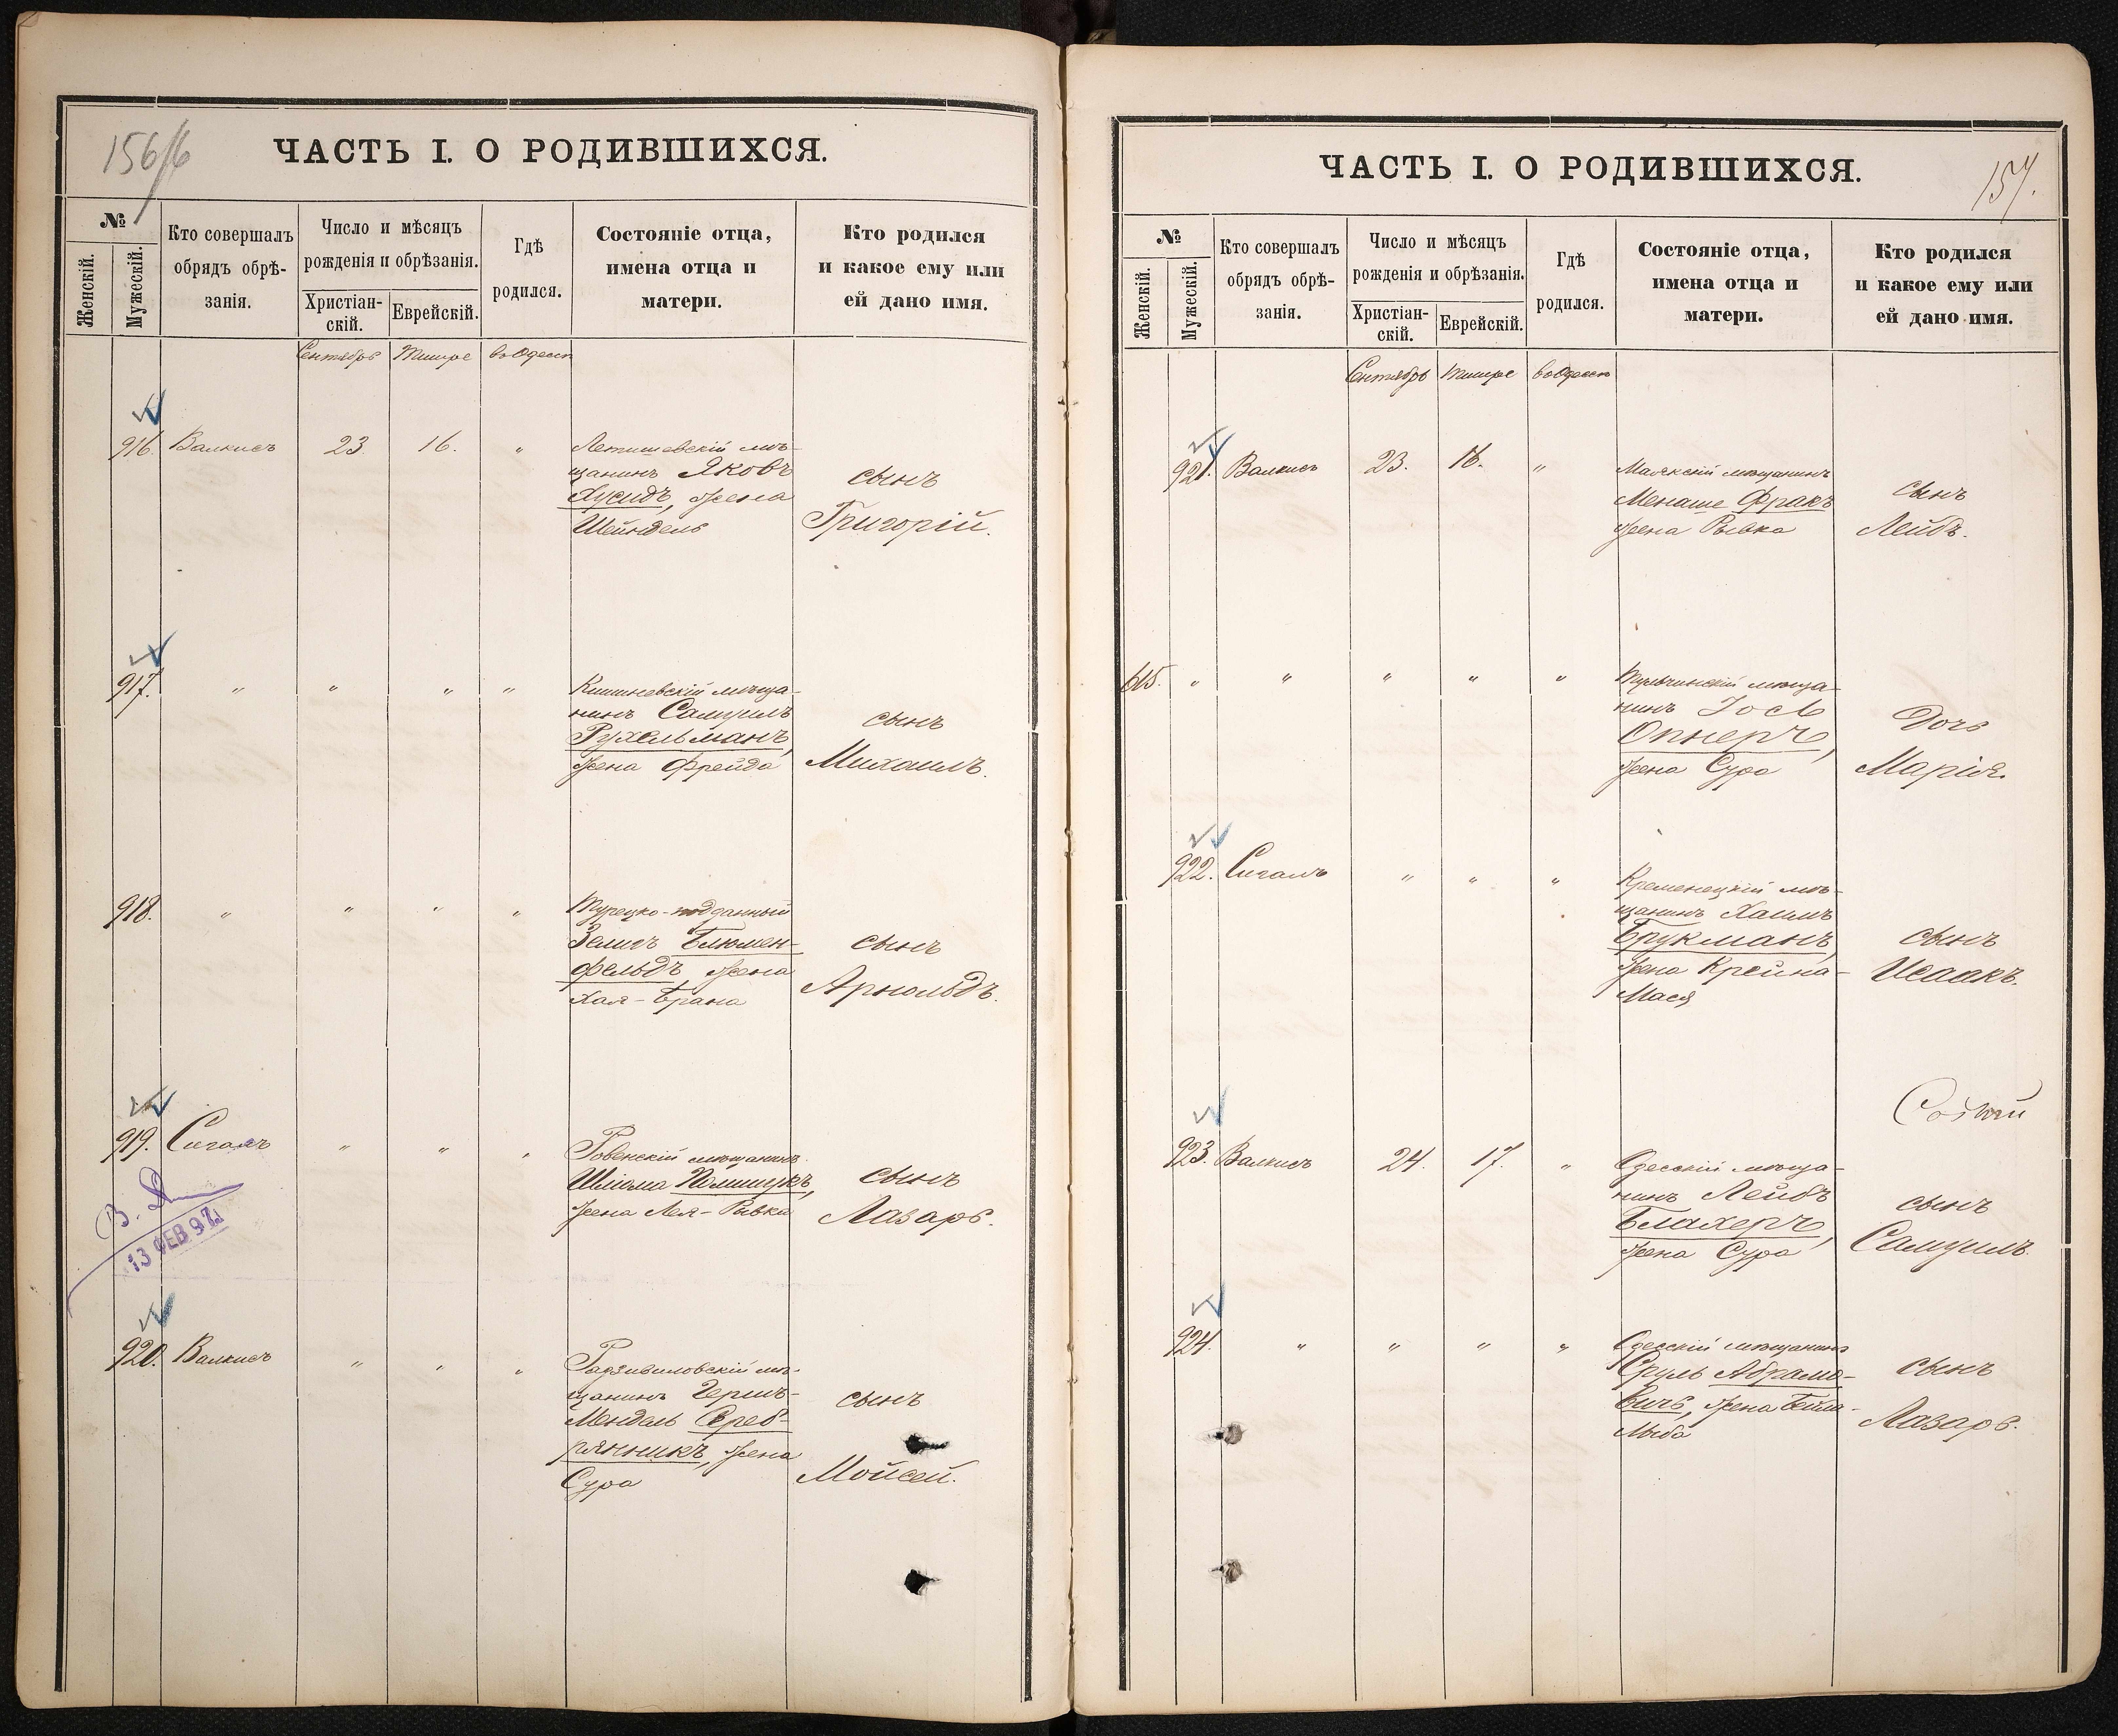 156/6
ЧАСТЬ I. О РОДИВШИХСЯ.
№
Женскій.
Мужескій.
Кто совершалъ
обрядъ обрѣ-
занія.
Число и мѣсяцъ
рожденія и обрѣзанія.
Христіан-
скій.
Еврейскій.
Гдѣ
родился.
Состояніе отца,
имена отца и
матери.
Кто родился
и какое ему или
ей дано имя.
Сентябрь Тишре въ Одессѣ
916. Валкисъ 23. 16. " Летичевскій мѣ-
щанинъ Яковъ
Хусидъ, жена
Шейндель
сынъ
Григорій.
917. " " " " Кишиневскій мѣща-
нинъ Самуилъ
Рухельманъ,
жена Фрейда
сынъ
Михаилъ.
918. " " " " Турецко-подданный
Зелигъ Блюмен-
фельдъ, жена
Хая-Брана
сынъ
Арнольдъ.
919. Сигалъ " " " Ровенскій мѣщанинъ
Шлюма Полищукъ,
жена Лея-Ривка
сынъ
Лазарь.
13 ФЕВ 97
920. Валкисъ " " " Радзивиловскій мѣ-
щанинъ Гершъ-
Мендель Среб-
рянникъ, жена
Сура
сынъ
Мойсей.
157.
ЧАСТЬ I. О РОДИВШИХСЯ.
№
Женскій.
Мужескій.
Кто совершалъ
обрядъ обрѣ-
занія.
Число и мѣсяцъ
рожденія и обрѣзанія.
Христіан-
скій.
Еврейскій.
Гдѣ
родился.
Состояніе отца,
имена отца и
матери.
Кто родился
и какое ему или
ей дано имя.
Сентябрь Тишре въ Одессѣ
921. Валкисъ 23. 16. " Маякскій мѣщанинъ
Менаше Фракъ
жена Ривка
сынъ
Лейбъ.
615. " " " " " Тульчинскій мѣща-
нинъ Іось
Опнеръ,
жена Сура
Дочь
Марія.
922. Сигалъ " " " Кременецкій мѣ-
щанинъ Хаимъ
Брукманъ,
жена Крейна-
Мася
сынъ
Исаакъ.
923. Валкисъ 24. 17. " Одесскій мѣща-
нинъ Лейбъ
Блахеръ,
жена Сура
сынъ
Самуилъ.
924. " " " " Одесскій мѣщанинъ
Сруль Абрамо-
вичъ, жена Бейла-
сынъ
Лазарь.